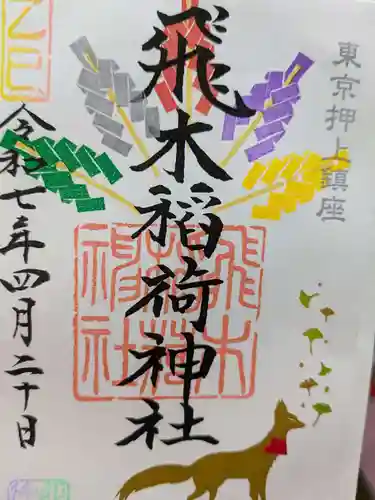 東京押上鎮座
飛木稲荷神社
飛木稲荷神社
令和七年四月二十日
乙巳